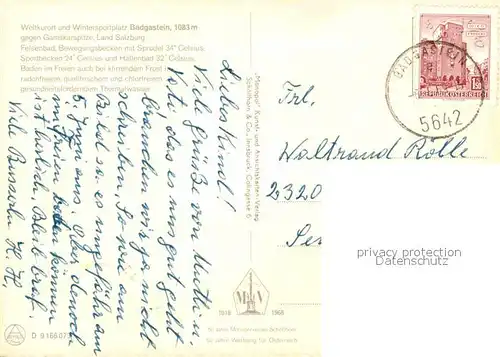 Weltkurort und Wintersportplatz Badgastein, 1083 m
gegen Gamskarspitze, Land Salzburg
Felsenbad, Bewegungsbecken mit Sprudel 34° Celsius,
Sportbecken 24° Celsius und Hallenbad 32° Celsius,
Baden im Freien auch bei klirrendem Frost in
radonfreiem, quellfrischem und chlorfreiem
gesundheitsförderndem Thermalwasser
Liebes Kind!
Viele Grüße von Mutti u.
Vati, das es uns gut geht
brauchen wir ja nicht
schreiben. So wie am
Bild ist es ungefähr am
5. Juni aus. Aber dennoch
im Freien baden können
ist herrlich. Bleib brav.
Viele Busserln
D 9166075
"Monopol" Kunst- und Ansichtskarten-Verlag
Schöllhorn & Co., Innsbruck, Colingasse 6
1918 1968
50 Jahre
50 Jahre Werbung für Österreich
BADGASTEIN
5642
REPUBLIK ÖSTERREICH
Frl.
Waltraud Rölle
2320
privacy protection
Datenschutz